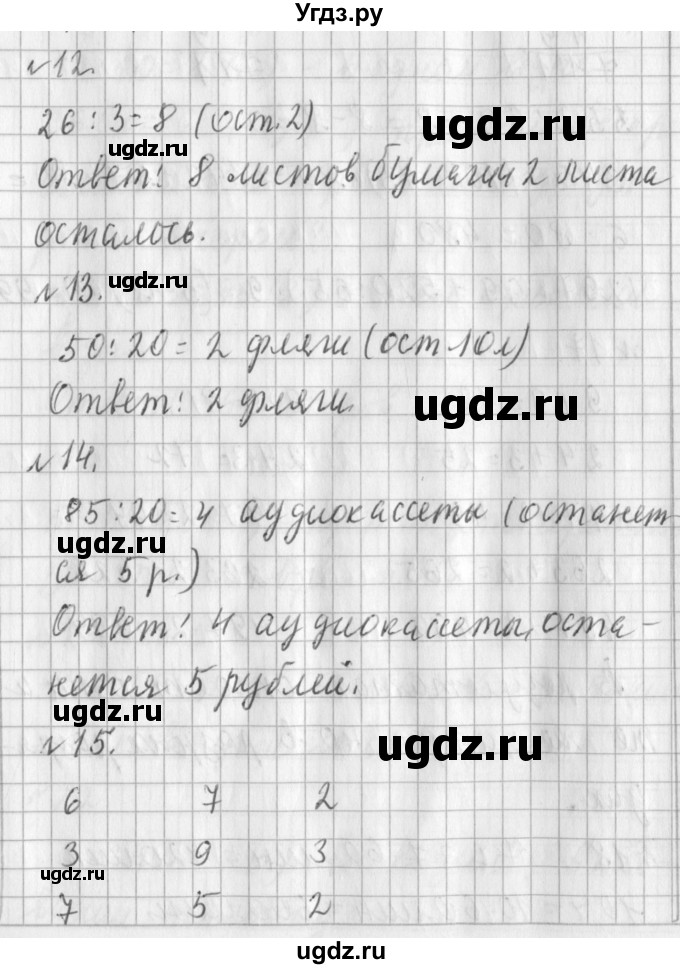 Угдз.ру
№12.
26 : 3 = 8 (ост. 2)
ugdz.ru
ugdz.ru
Ответ: 8 листов бумаги и 2 листа
осталось.
ugdz.ru
№13.
50 : 20 = 2 фляги (ост 10л)
Ответ: 2 фляги.
ugdz.ru
№14.
85 : 20 = 4 аудиокассеты (останет-
ugdz.ru
ся 5 р.)
Ответ: 4 аудиокассеты, оста-
нется 5 рублей.
ugdz.ru
№15.
ugdz.ru
6 7 2
3 9 3
ugdz.ru
7 5 2
ugdz.ru